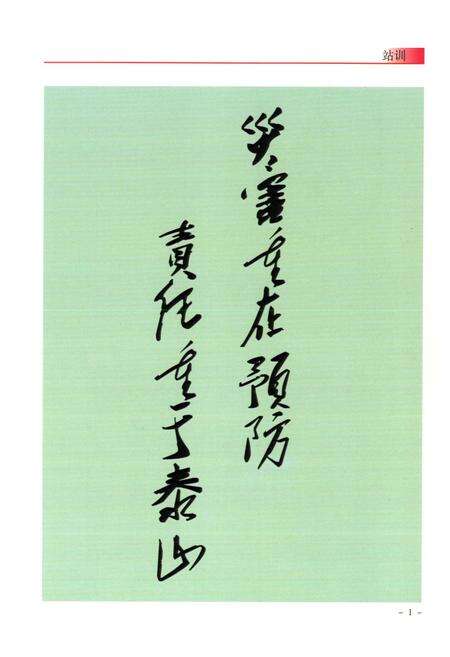 站训
災害重在預防
責任重于泰山
- 1 -